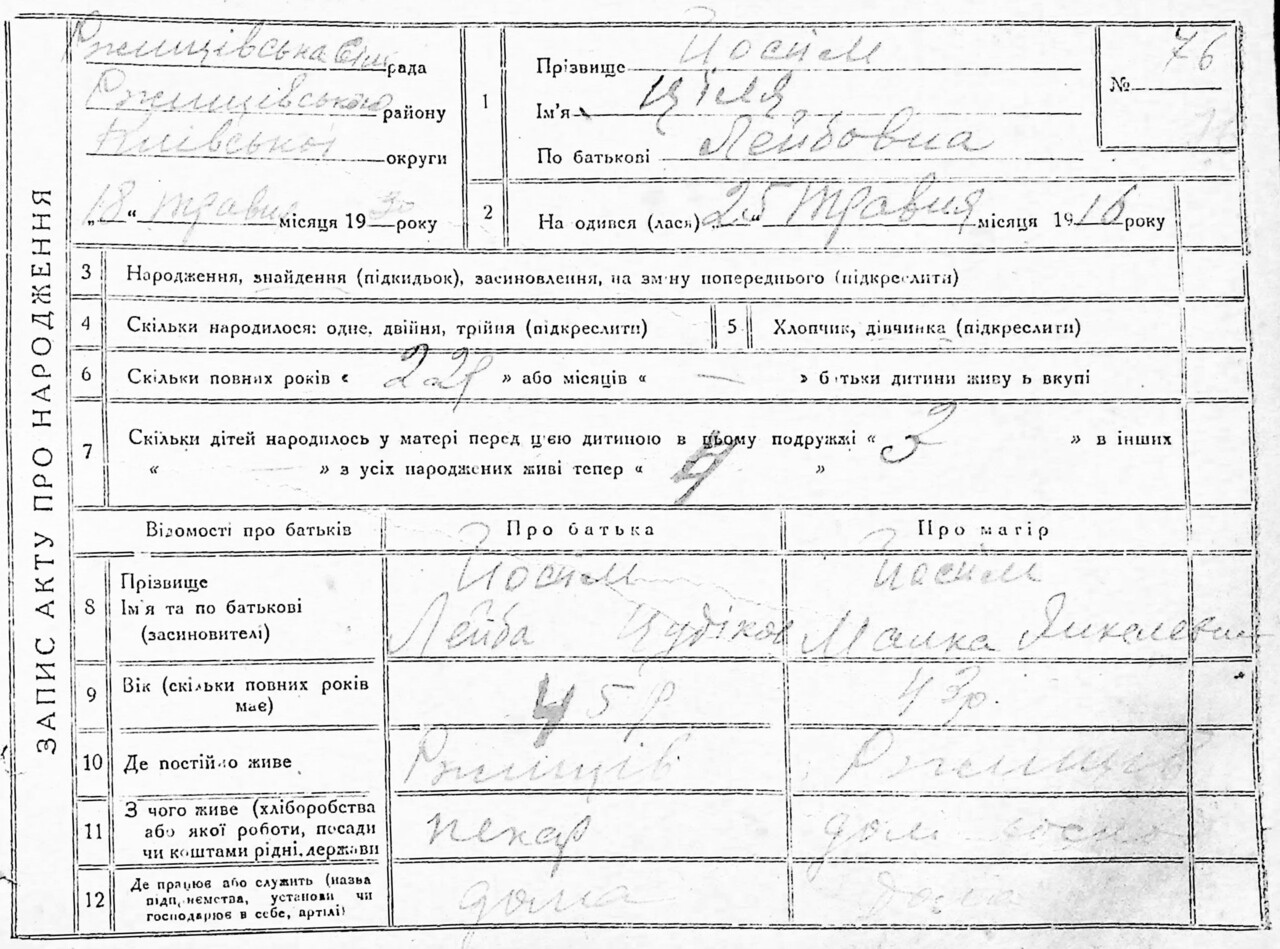 ЗАПИС АКТУ ПРО НАРОДЖЕННЯ
Ржищівська Сіл рада
Ржищівського району
Київської округи
„18“ травня місяця 1930 року
1
Прізвище Йосим
Ім'я Ціля
По батькові Лейбовна
№ 76
2
На одився (лась) „25“ травня місяця 1916 року
3 Народження, знайдення (підкидьок), засиновлення, на зміну попереднього (підкреслити)
4 Скільки народилося: одне, двійня, трійня (підкреслити)
5 Хлопчик, дівчинка (підкреслити)
6 Скільки повних років « 22р » або місяців « — » батьки дитини живуть вкупі
7 Скільки дітей народилось у матері перед цією дитиною в цьому подружжі « 3 » в інших
« — » з усіх народжених живі тепер « 4 »
Відомості про батьків
Про батька
Про матір
8
Прізвище
Ім'я та по батькові
(засиновителі)
Йосим
Лейба
Йосим
Малка
9 Вік (скільки повних років має)
45р
43р.
10 Де постійно живе
Ржищів
Ржищів
11
З чого живе (хліборобства
або якої роботи, посади
чи коштами рідні, держави
пекар
дом госпо
12
Де працює або служить (назва
підприємства, установи чи
господарює в себе, артілі)
дома
дома